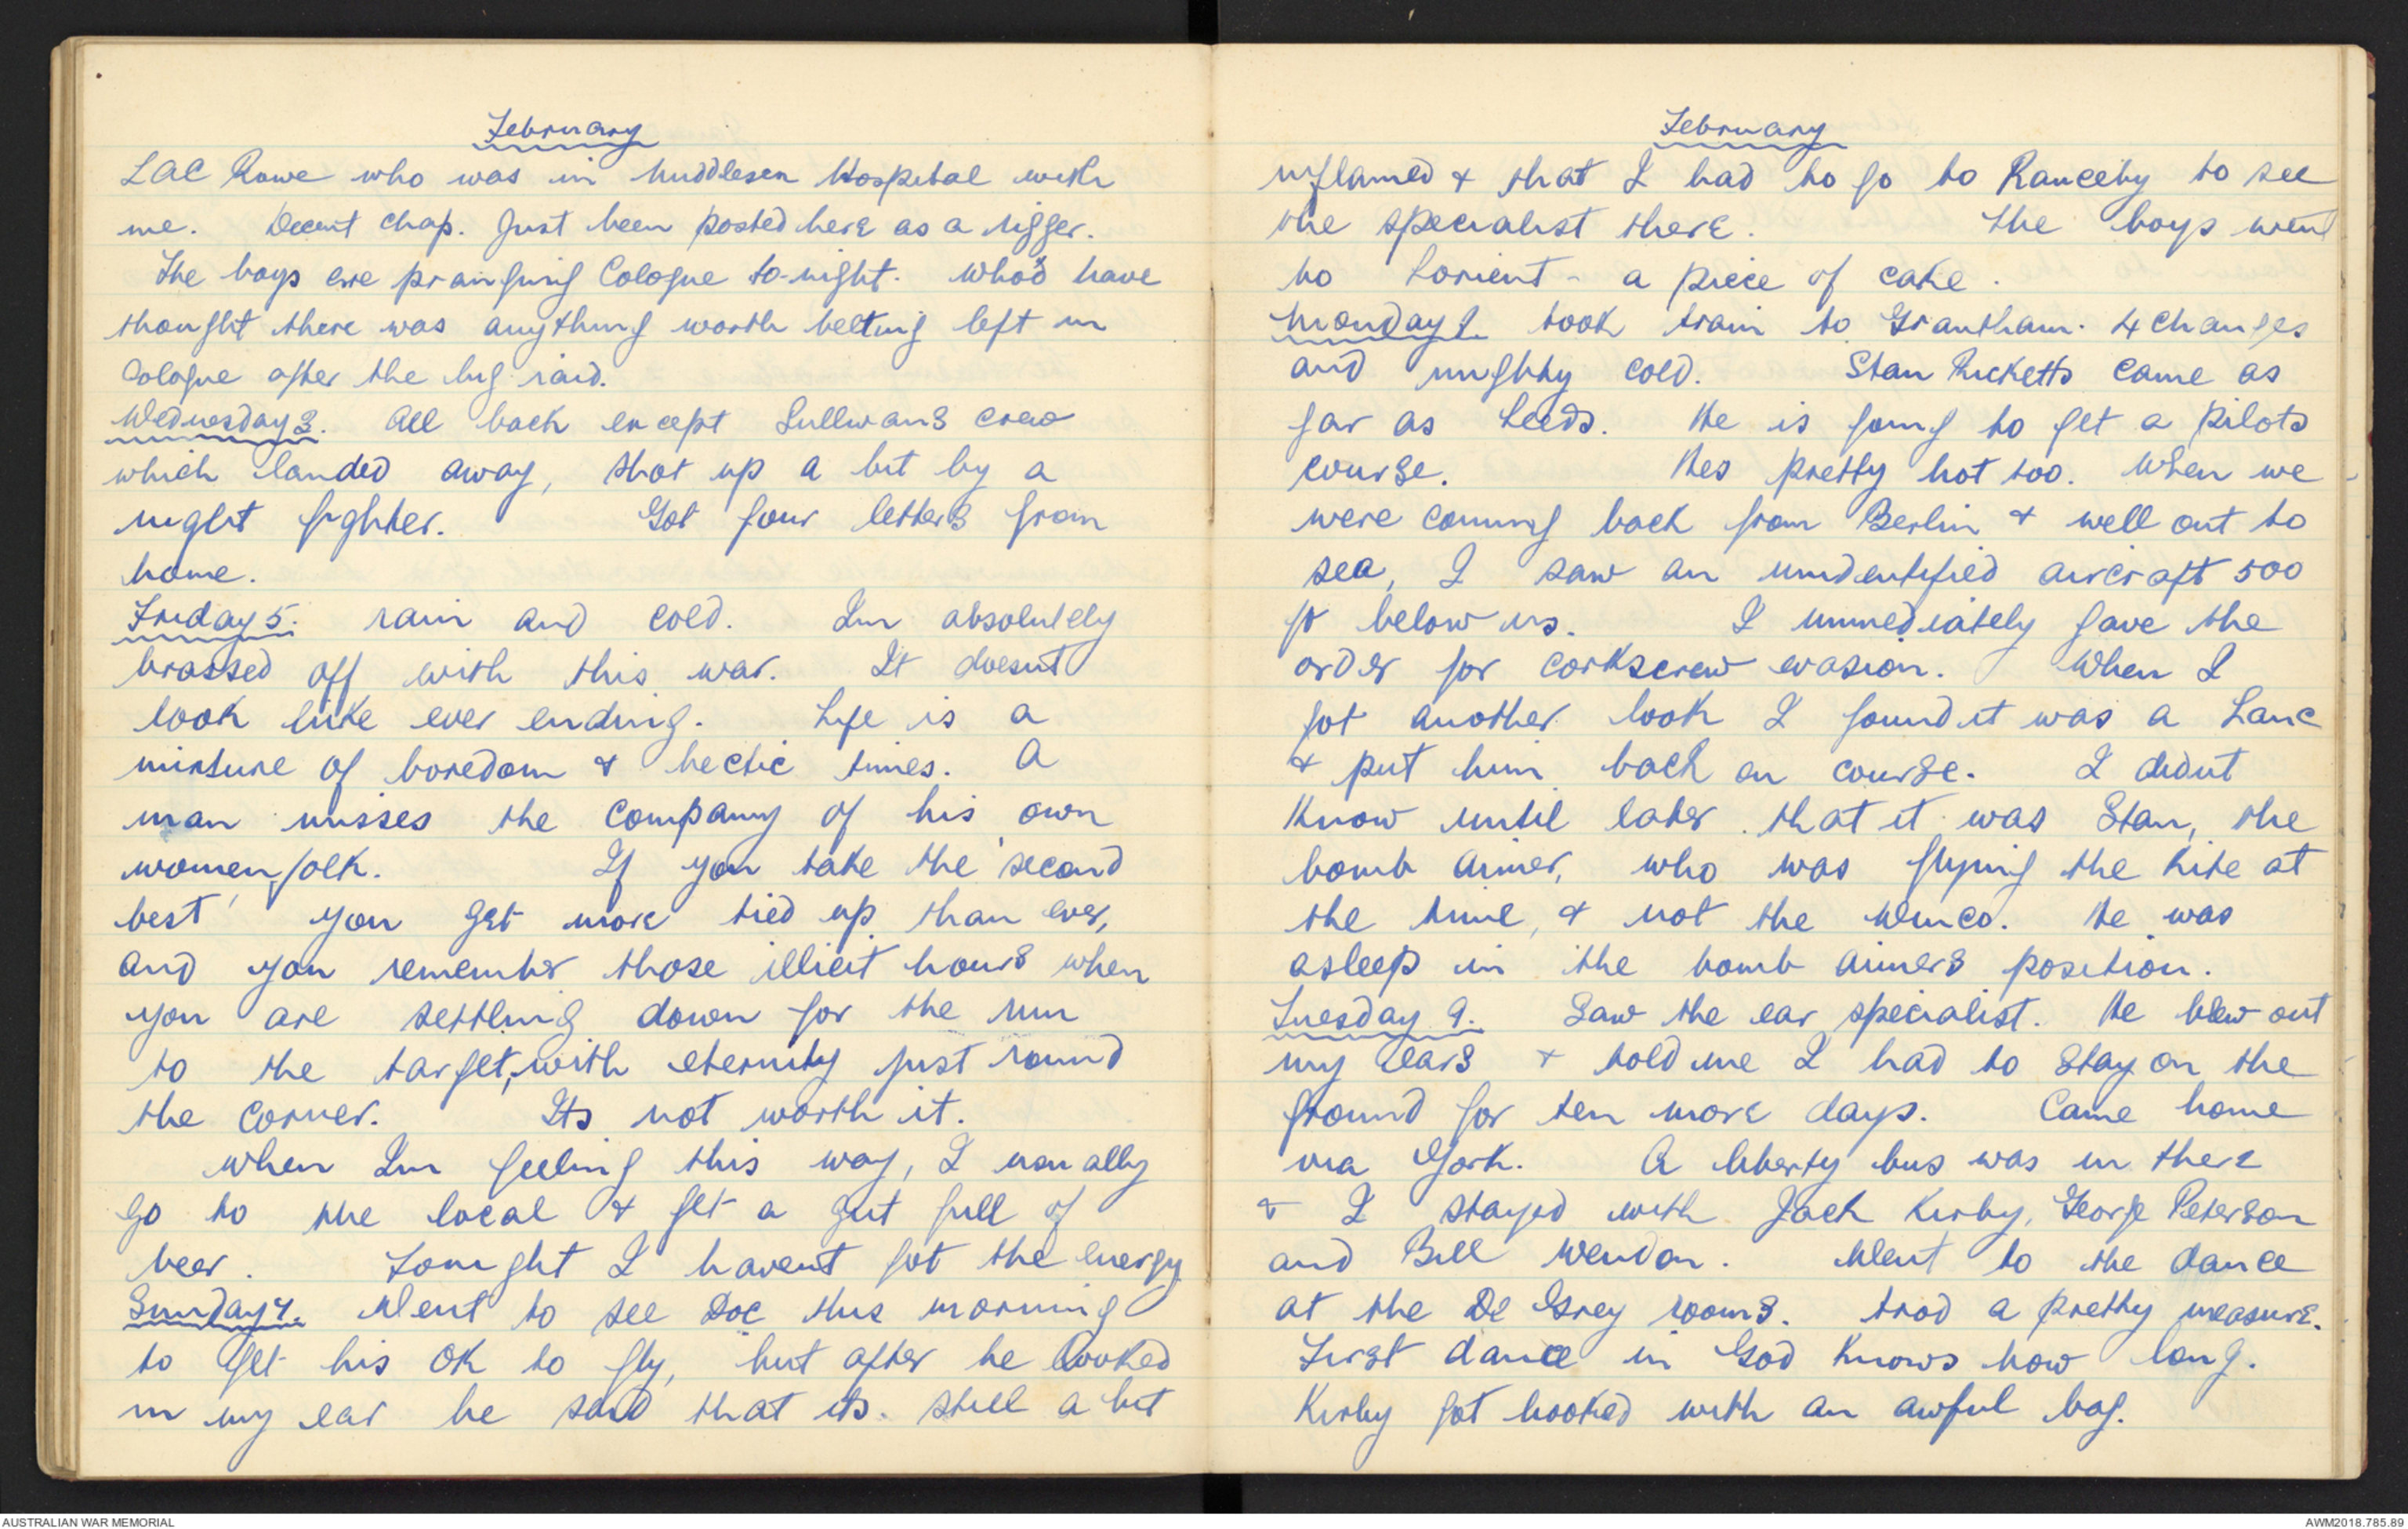 February
LAC Rowe who was in Middlesex Hospital with
me. Decent chap. Just been posted here as a rigger.
The boys are pranging Cologne to-night. Who'd have
thought there was anything worth belting left in
Cologne after the big raid.
Wednesday 3. All back except Sullivans crew
which landed away, shot up a bit by a
night fighter. Got four letters from
home.
Friday 5. rain and cold. Im absolutely
brassed off with this war. It doesnt
look like ever ending. Life is a
mixture of boredom & hectic times. A
man misses the company of his own
womenfolk. If you take the second
best you get more tied up than ever,
and you remember those illicit hours when
you are settling down for the run
to the target, with eternity just round
the corner. Its not worth it.
When Im feeling this way, I usually
go to the local & get a gut full of
beer. Tonight I havent got the energy
Sunday 7. Went to see Doc this morning
to get his OK to fly, but after he looked
in my ear he said that its still a bit
February
inflamed & that I had to go to Rauceby to see
the specialist there. The boys went
to Lorient - a piece of cake.
Monday 8. took train to Grantham. 4 changes
and mighty cold. Stan Ricketts came as
far as Leeds. He is going to get a pilots
course. Hes pretty hot too. When we
were coming back from Berlin & well out to
sea, I saw an unidentified aircraft 500
ft below us. I immediately gave the
order for corkscrew evasion. When I
got another look I found it was a Lanc
& put him back on course. I didnt
know until later that it was Stan, the
bomb aimer, who was flying the kite at
the time, & not the Winco. He was
asleep in the bomb aimers position.
Tuesday 9. Saw the ear specialist. He blew out
my ears & told me I had to stay on the
ground for ten more days. Came home
via York. A liberty bus was in there
& I stayed with Jack Kirby, George Peterson
and Bill Wendon. Went to the dance
at the De Grey rooms. trod a pretty measure.
First dance in God knows how long.
Kirby got hooked with an awful bag.
AUSTRALIAN WAR MEMORIAL
AWM2018.785.89